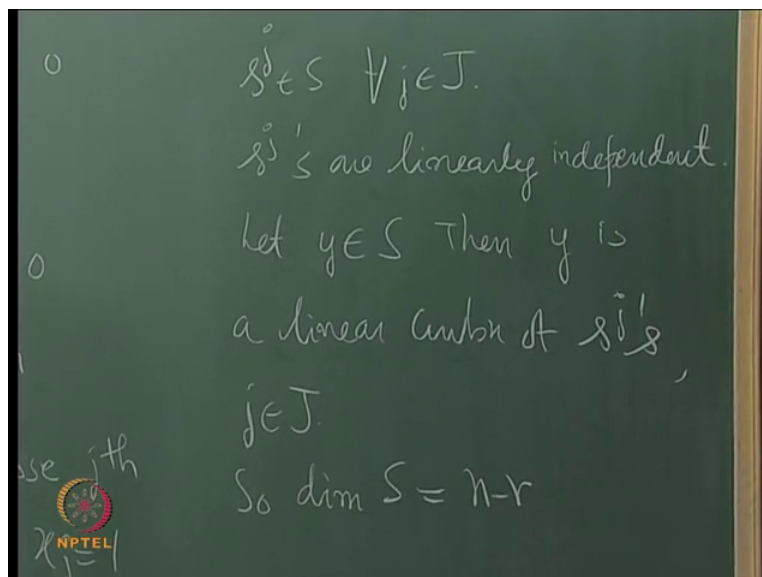 0
s^j ∈ S ∀ j ∈ J.
s^j's are linearly independent.
Let y ∈ S Then y is
0
a linear of s^j's,
j ∈ J.
jth
So dim S = n-r
NPTEL
x_j=1